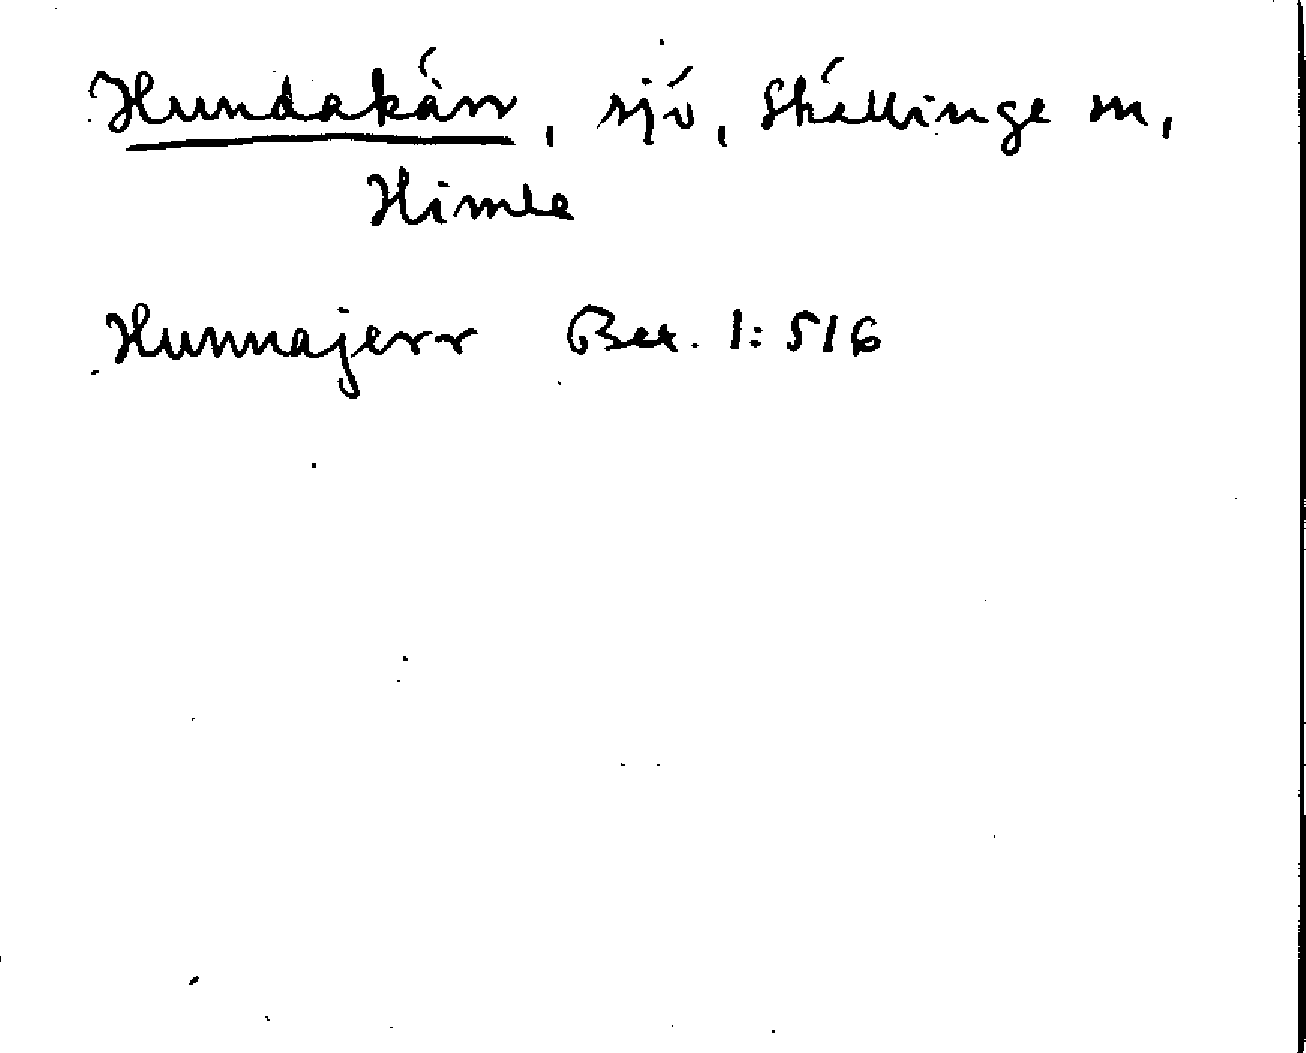 Hundakärr, sjö, Skällinge sn,
Himle
Hunnajerr Bex. 1:516